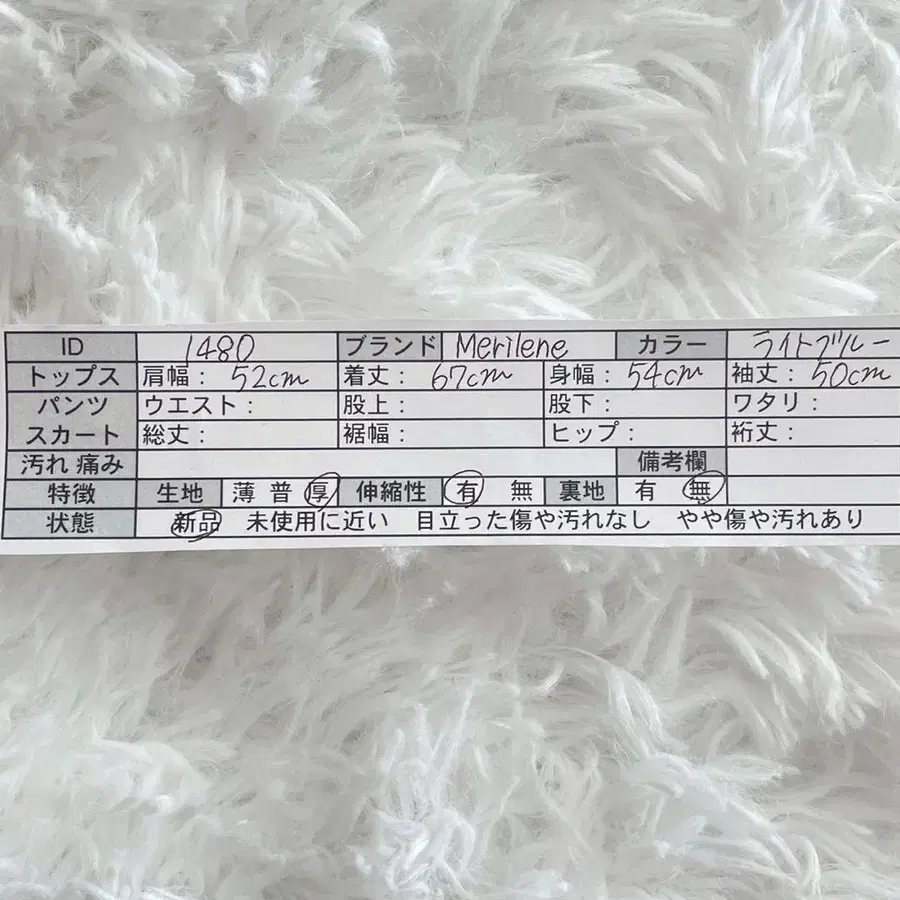 ID 1480 ブランド Merilene カラー ライトブルー
トップス 肩幅: 52cm 着丈: 67cm 身幅: 54cm 袖丈: 50cm
パンツ ウエスト: 股上: 股下: ワタリ:
スカート 総丈: 裾幅: ヒップ: 裄丈:
汚れ 痛み 備考欄
特徴 生地 薄 普 厚 伸縮性 有 無 裏地 有 無
状態 新品 未使用に近い 目立った傷や汚れなし やや傷や汚れあり